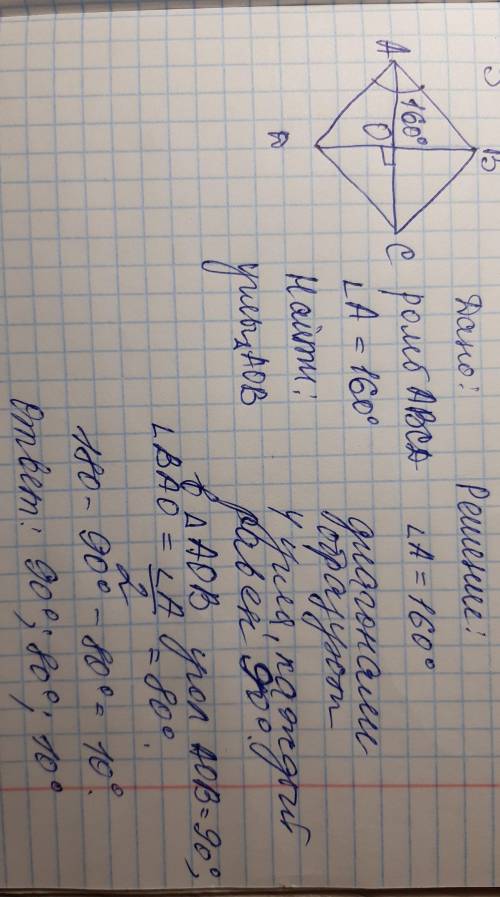 A
160°
B
O
C
Д
Дано:
ромб ABCД
∠A = 160°
Найти:
углы △ AOB
Решение:
∠A = 160°
диагонали
образуют
4 угла, каждый
равен 90°.
в △ AOB угол AOB = 90°,
∠BAO = ∠A/2 = 80°.
180 - 90° - 80° = 10°.
Ответ: 90°; 80°; 10°